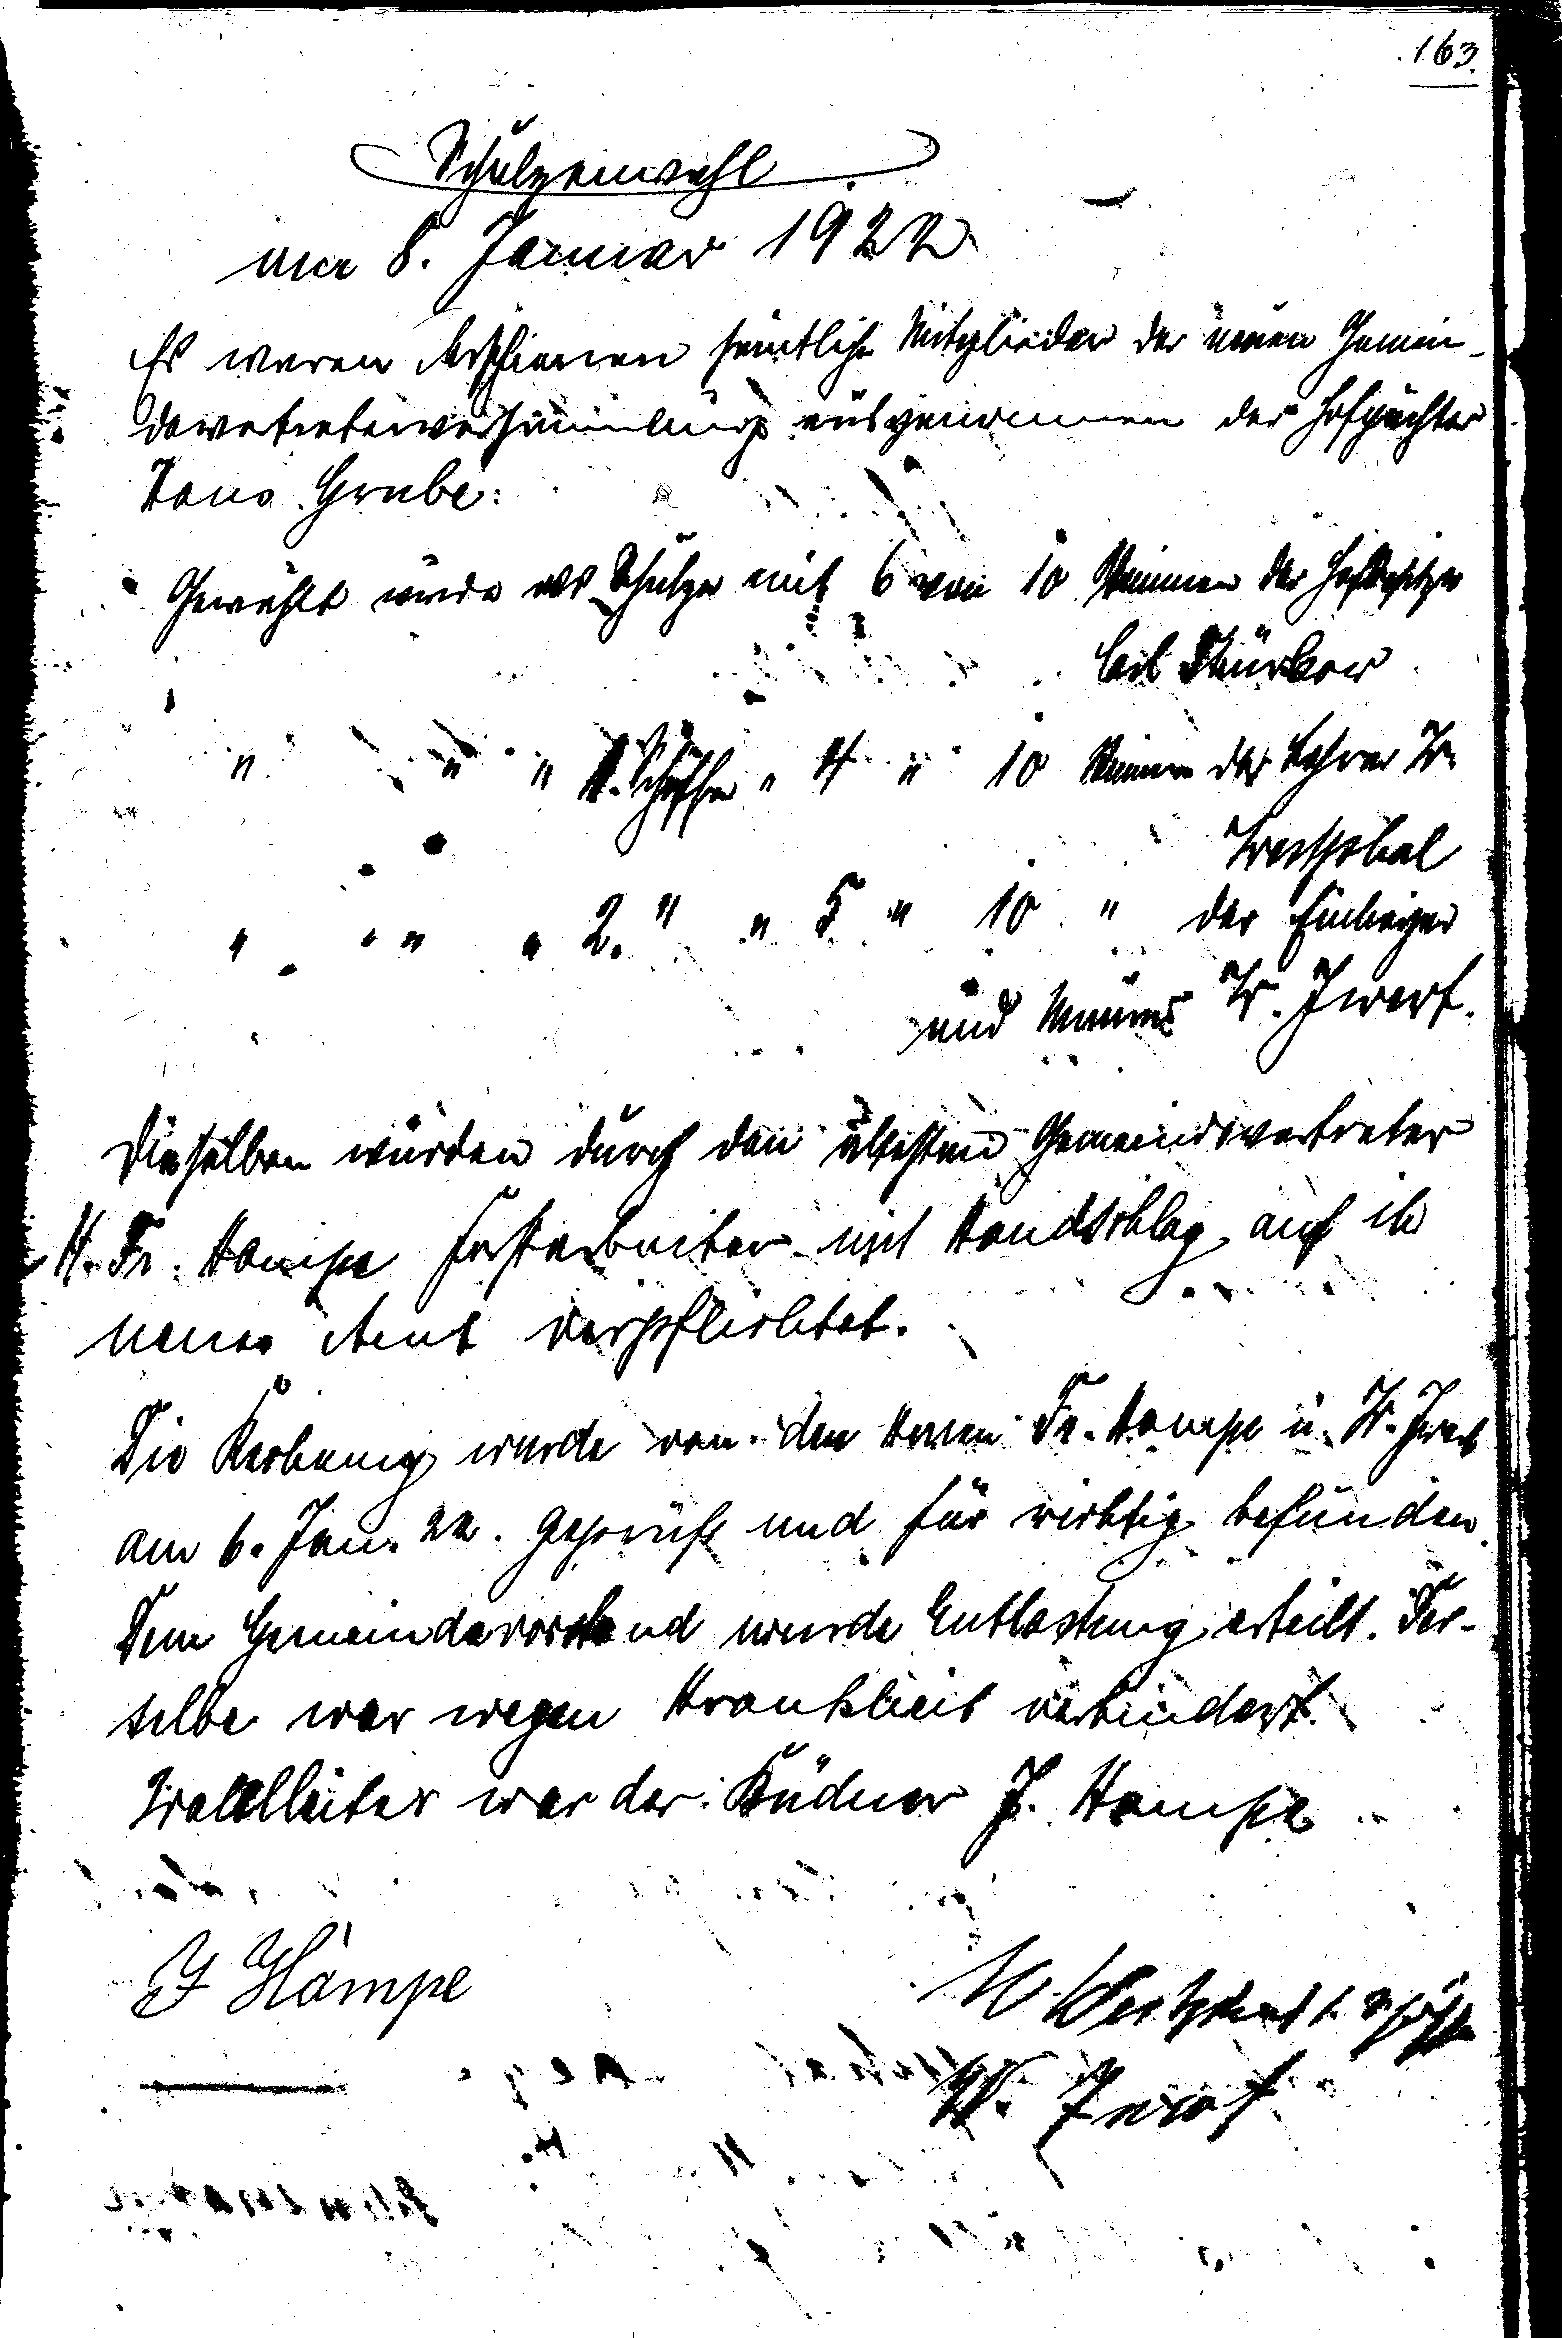 163.
Schulzenwahl
am 8. Januar 1922
Es waren erschienen sämtliche Mitglieder der neuen Gemein-
devertreterversammlung ausgenommen der Hofpächter
Hans Grube.
Gewählt wurde als Schulze mit 6 von 10 Stimmen der Hofbesitzer
" " " 1. Schöffe " 4 " 10 Stimmen der Lehrer W.
Westphal
" " " " 2. " " 5 " 10 " der Einlieger
und W. Iwerf.
Dieselben wurden durch den ältesten Gemeindevertreter
H. Fr. Hampe Forstarbeiter mit Handschlag auf ih
neues Amt verpflichtet.
Die wurde von den Herren Fr. Hampe u. W. Iwerf
am 6. Jan. 22. geprüft und für richtig befunden.
Dem Gemeindevorstand wurde Entlastung erteilt. Der-
selbe war wegen Krankheit verhindert.
Wahlleiter war der Büdner J. Hampe
J Hampe
W. Westphal 1. Schöffe
W. Iwerf